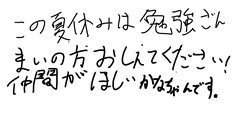 この夏休みは勉強ざん
まいの方おしえてください!
仲間がほしいかなちゃんです。